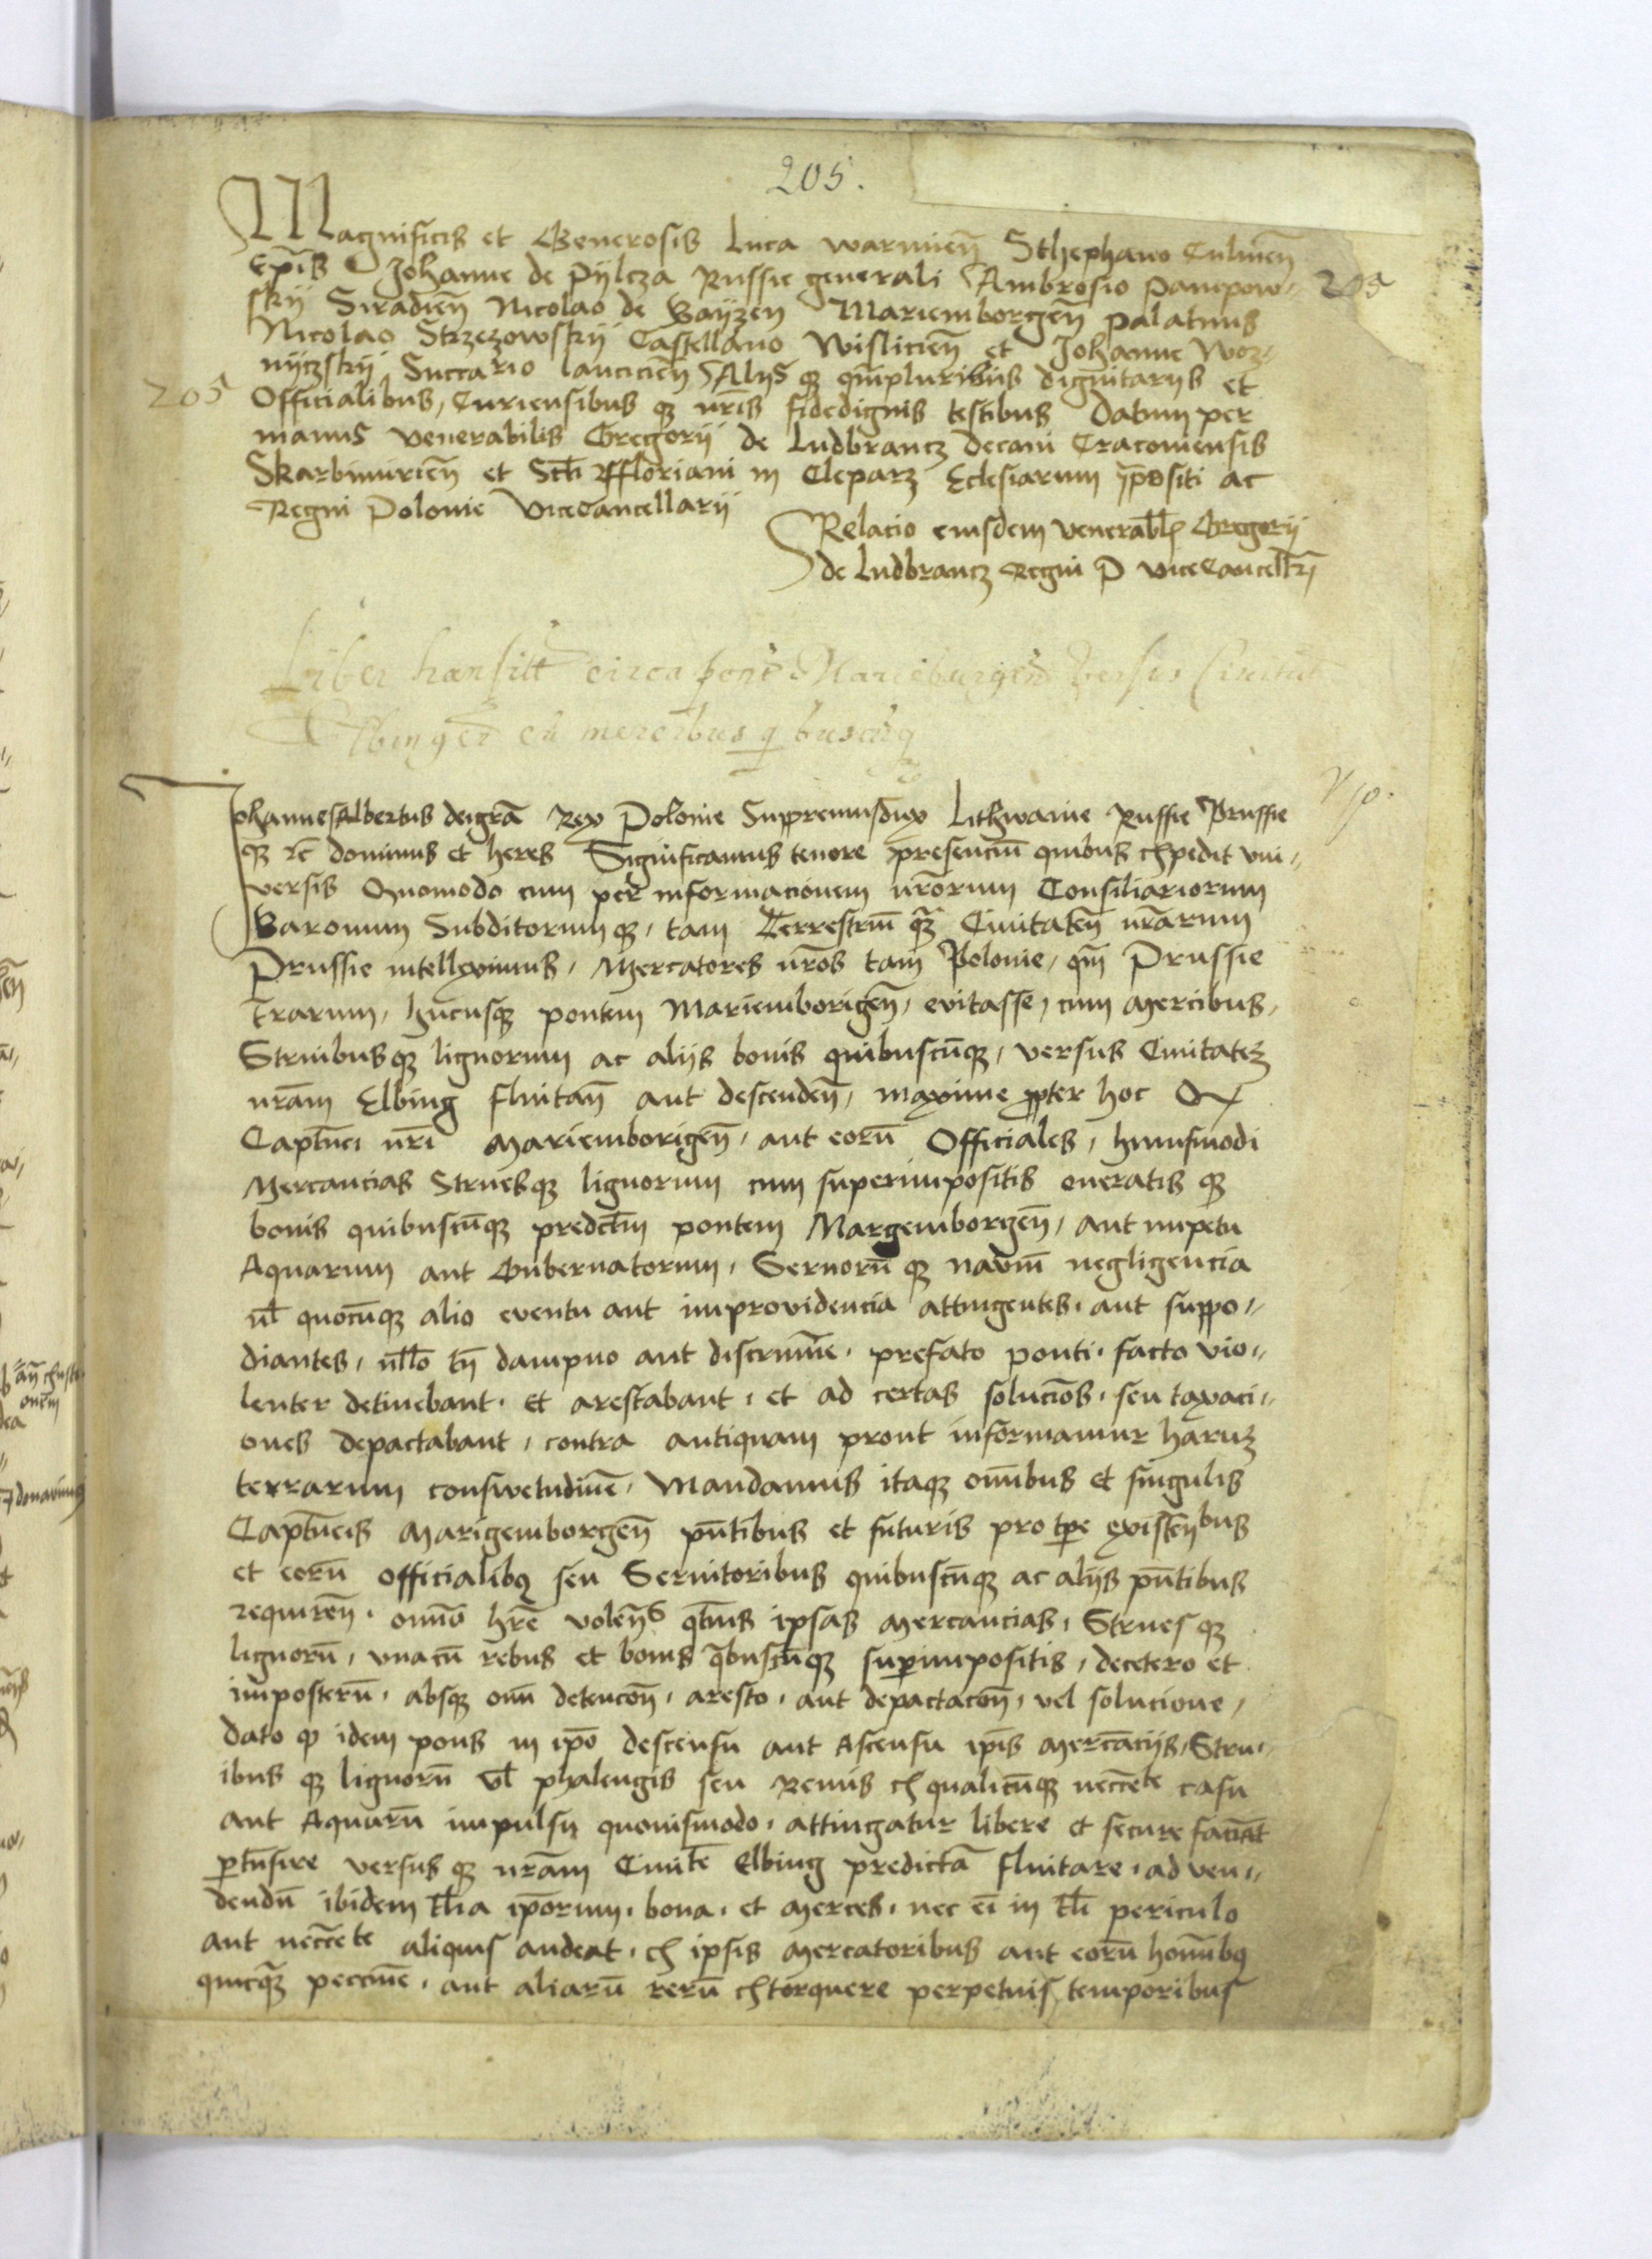 205.
Magnificis et Generosis Luca warmien̄ Sthephano Culmen̄
Ep̄is Johanne de Pylcza Russie generali Ambrosio pampow⸗
skij Siradien̄ Nicolao de Bayzen Mariemborgen̄ palatinis
Nicolao Strzezowskij Castellano Wislicien̄ et Johanne Woz⸗
nijczskij Succario lancicien̄ Alijs qȝ quapluribus dignitarijs et
Officialibus, Curiensibus qȝ nr̄is fidedignis testibus Datum per
manus venerabilis Gregorij de Ludbrancz decani Cracouiensis
Skarbimirien̄ et Scti fflorianj in Cleparz Eclesiarum p̄positi ac
Regni Polonie Vicecancellarij
Relacio eiusdem venerabl̄ Gregorij
de Ludbrancz Regni P vicecancell̄rj
205
205
Liber transitt circa pont Marieburgen̄ versus Ciuitat
Elbingen̄ cū mercibus qbuscūq
Johannesalbertus deigrā Rex Polonie Suppremusdux Lithwanie Russie Prussie
qȝ rc̄ dominus et heres Significamus tenore presenciū quibus expedit vni⸗
versis Quomodo cum per informacionem nr̄orum Consiliariorum
Baronum Subditorumqȝ, tam Terrestriū qȝ̄ Ciuitaten̄ nr̄arum
Prussie intelleximus, Mercatores nr̄os tam Polonie, qm̄ Prussie
tr̄arum, hucusqȝ pontem Mariemborigen̄, evitasse, cum mercibus,
Struibusqȝ lignorum ac alijs bonis quibuscūqȝ, versus Ciuitatēȝ
nr̄am Elbing fluitan̄ aut descenden̄, maxime ꝓpter hoc Qꝛ
Capt̄nei nr̄i Mariemborigen̄, aut eorū Officiales, huiusmodi
Mercancias Struesqȝ lignorum cum superimpositis oneratis qȝ
bonis quibuscūqȝ predct̄m pontem Margemborgen̄, aut impetu
Aquarum aut Gubernatorum, Seruorū qȝ naviū negligencia
ul̄ quocūqȝ alio eventu aut improvidencia attingentes, aut suppo⸗
diantes, nll̄o tn̄ dampno aut discrimīe, prefato ponti, facto vio⸗
lenter detinebant, et arestabant, et ad certas soluciōs, seu taxaci⸗
ones depactabant, contra antiquam prout informamur haruȝ
terrarum conswetudinē, Mandamus itaqȝ om̄ibus et singulis
Capt̄neis Marigemborgen̄ pn̄tibus et futuris pro tp̄e existen̄bus
et eorū officialibq seu Seruitoribus quibuscūqȝ ac alijs pn̄tibus
requiren̄, om̄o hr̄e volen̄s qt̄nus ipsas mercancias, Strues qȝ
lignorū, vnacū rebus et bonis qbuscūqȝ suꝑimpositis, decetero et
imposterū, absqȝ om̄i detencōn̄, aresto, aut depactacōn̄, vel solucione,
dato qꝫ idem pons in ip̄o descensu aut Ascensu ip̄is mercācijs, Stru⸗
ibus qȝ lignorū vl̄ phalengis seu Remis ex qualicūqȝ necc̄te casu
aut Aquarū impulsu quouismodo, attingatur libere et secure faciāt
ꝑtn̄sire versus qȝ nr̄am Ciuit̄e Elbing predictā fluitare, ad ven⸗
dendū ibidem tl̄ia ip̄orum, bona, et merces, nec eī in tl̄i periculo
aut necc̄te aliquis audeat, ex ipsis mercatoribus aut eorū hom̄ibq
quicqȝ̄ pecunie, aut aliarū rerū extorquere perpetuis temporibus